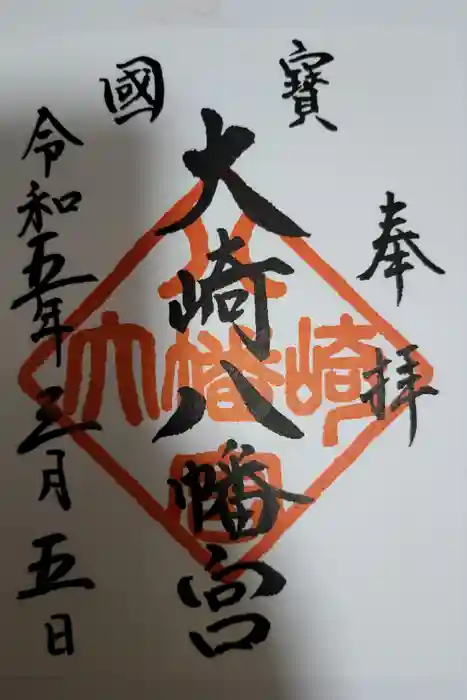 國寶
奉拝
大崎八幡宮
令和五年三月五日
大崎八幡宮